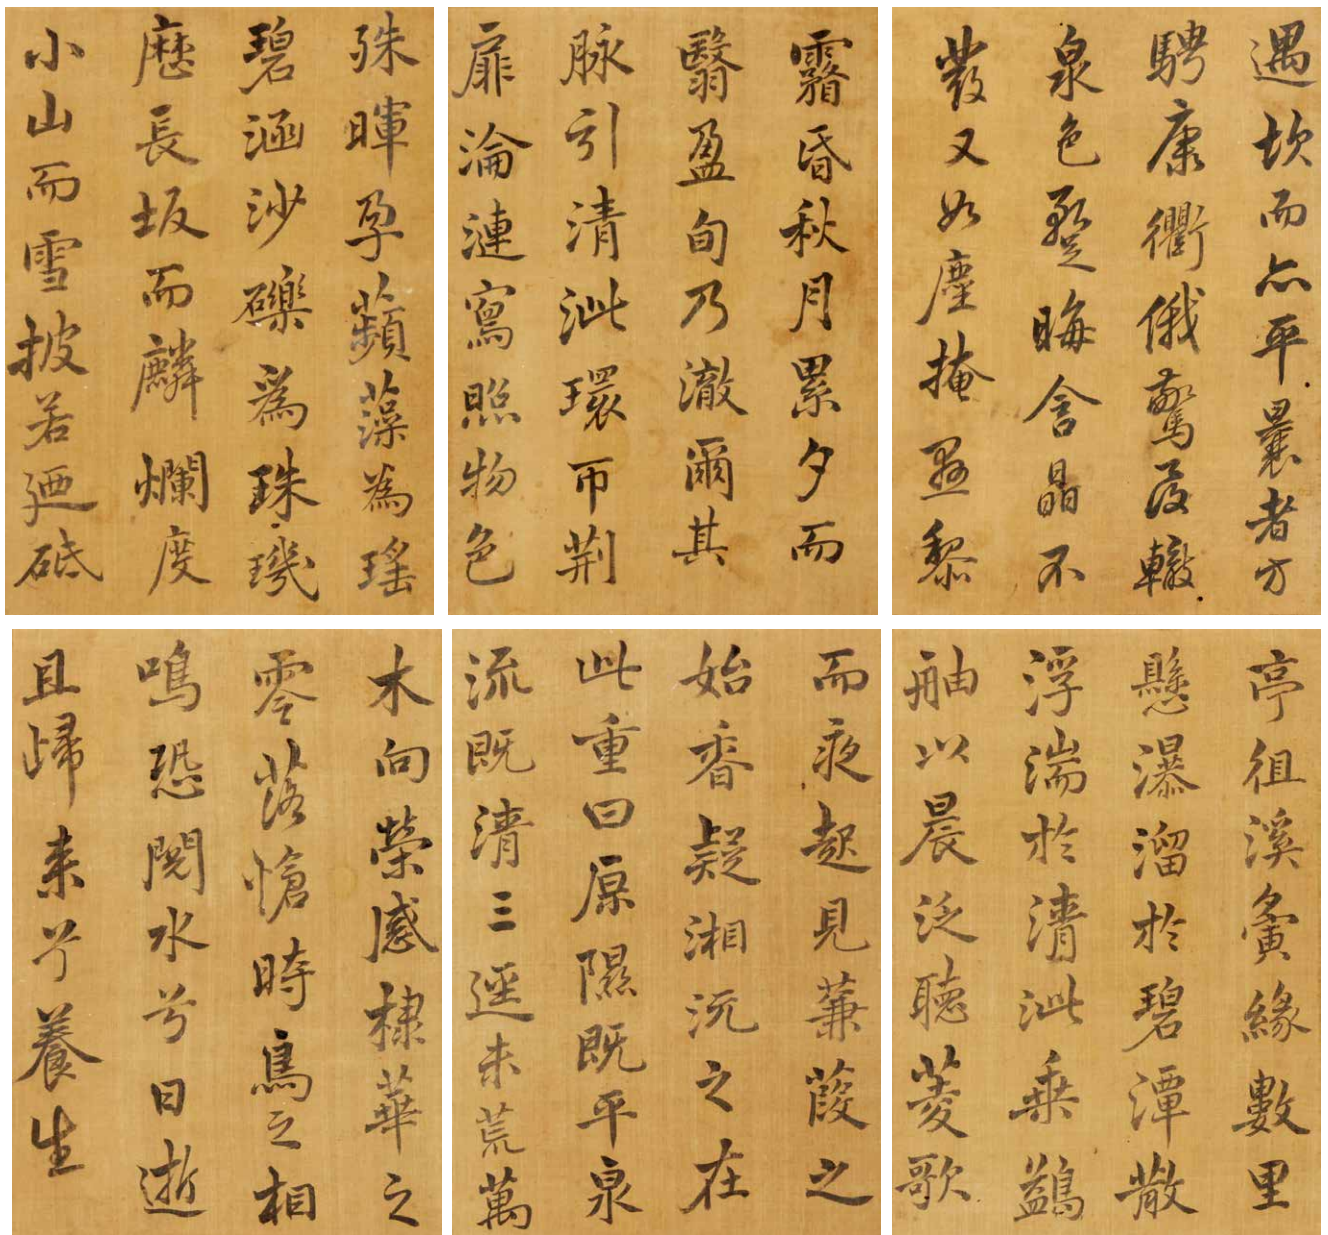 遇坎而亦平曩者方
騁康衢俄驚沒轍
泉色蹔晦含晶不
發又如塵掩黎
霧昏秋月累夕而
翳盈旬乃澈爾其
脉引清泚環帀荆
扉淪漣寫照物色
殊暉孕蘋藻為瑤
碧涵沙礫為珠璣
歷長坂而麟爛度
小山而雪披若廼砥
亭徂溪夤緣數里
懸瀑溜於碧潭散
浮湍於清泚乗鷁
舳以晨泛聽菱歌
而夜趂見蒹葭之
始香疑湘沅之在
此重曰原隰既平泉
流既清三逕未荒萬
木向榮感棣華之
零落愴時鳥之相
鳴恐閱水兮日逝
且歸来兮養生